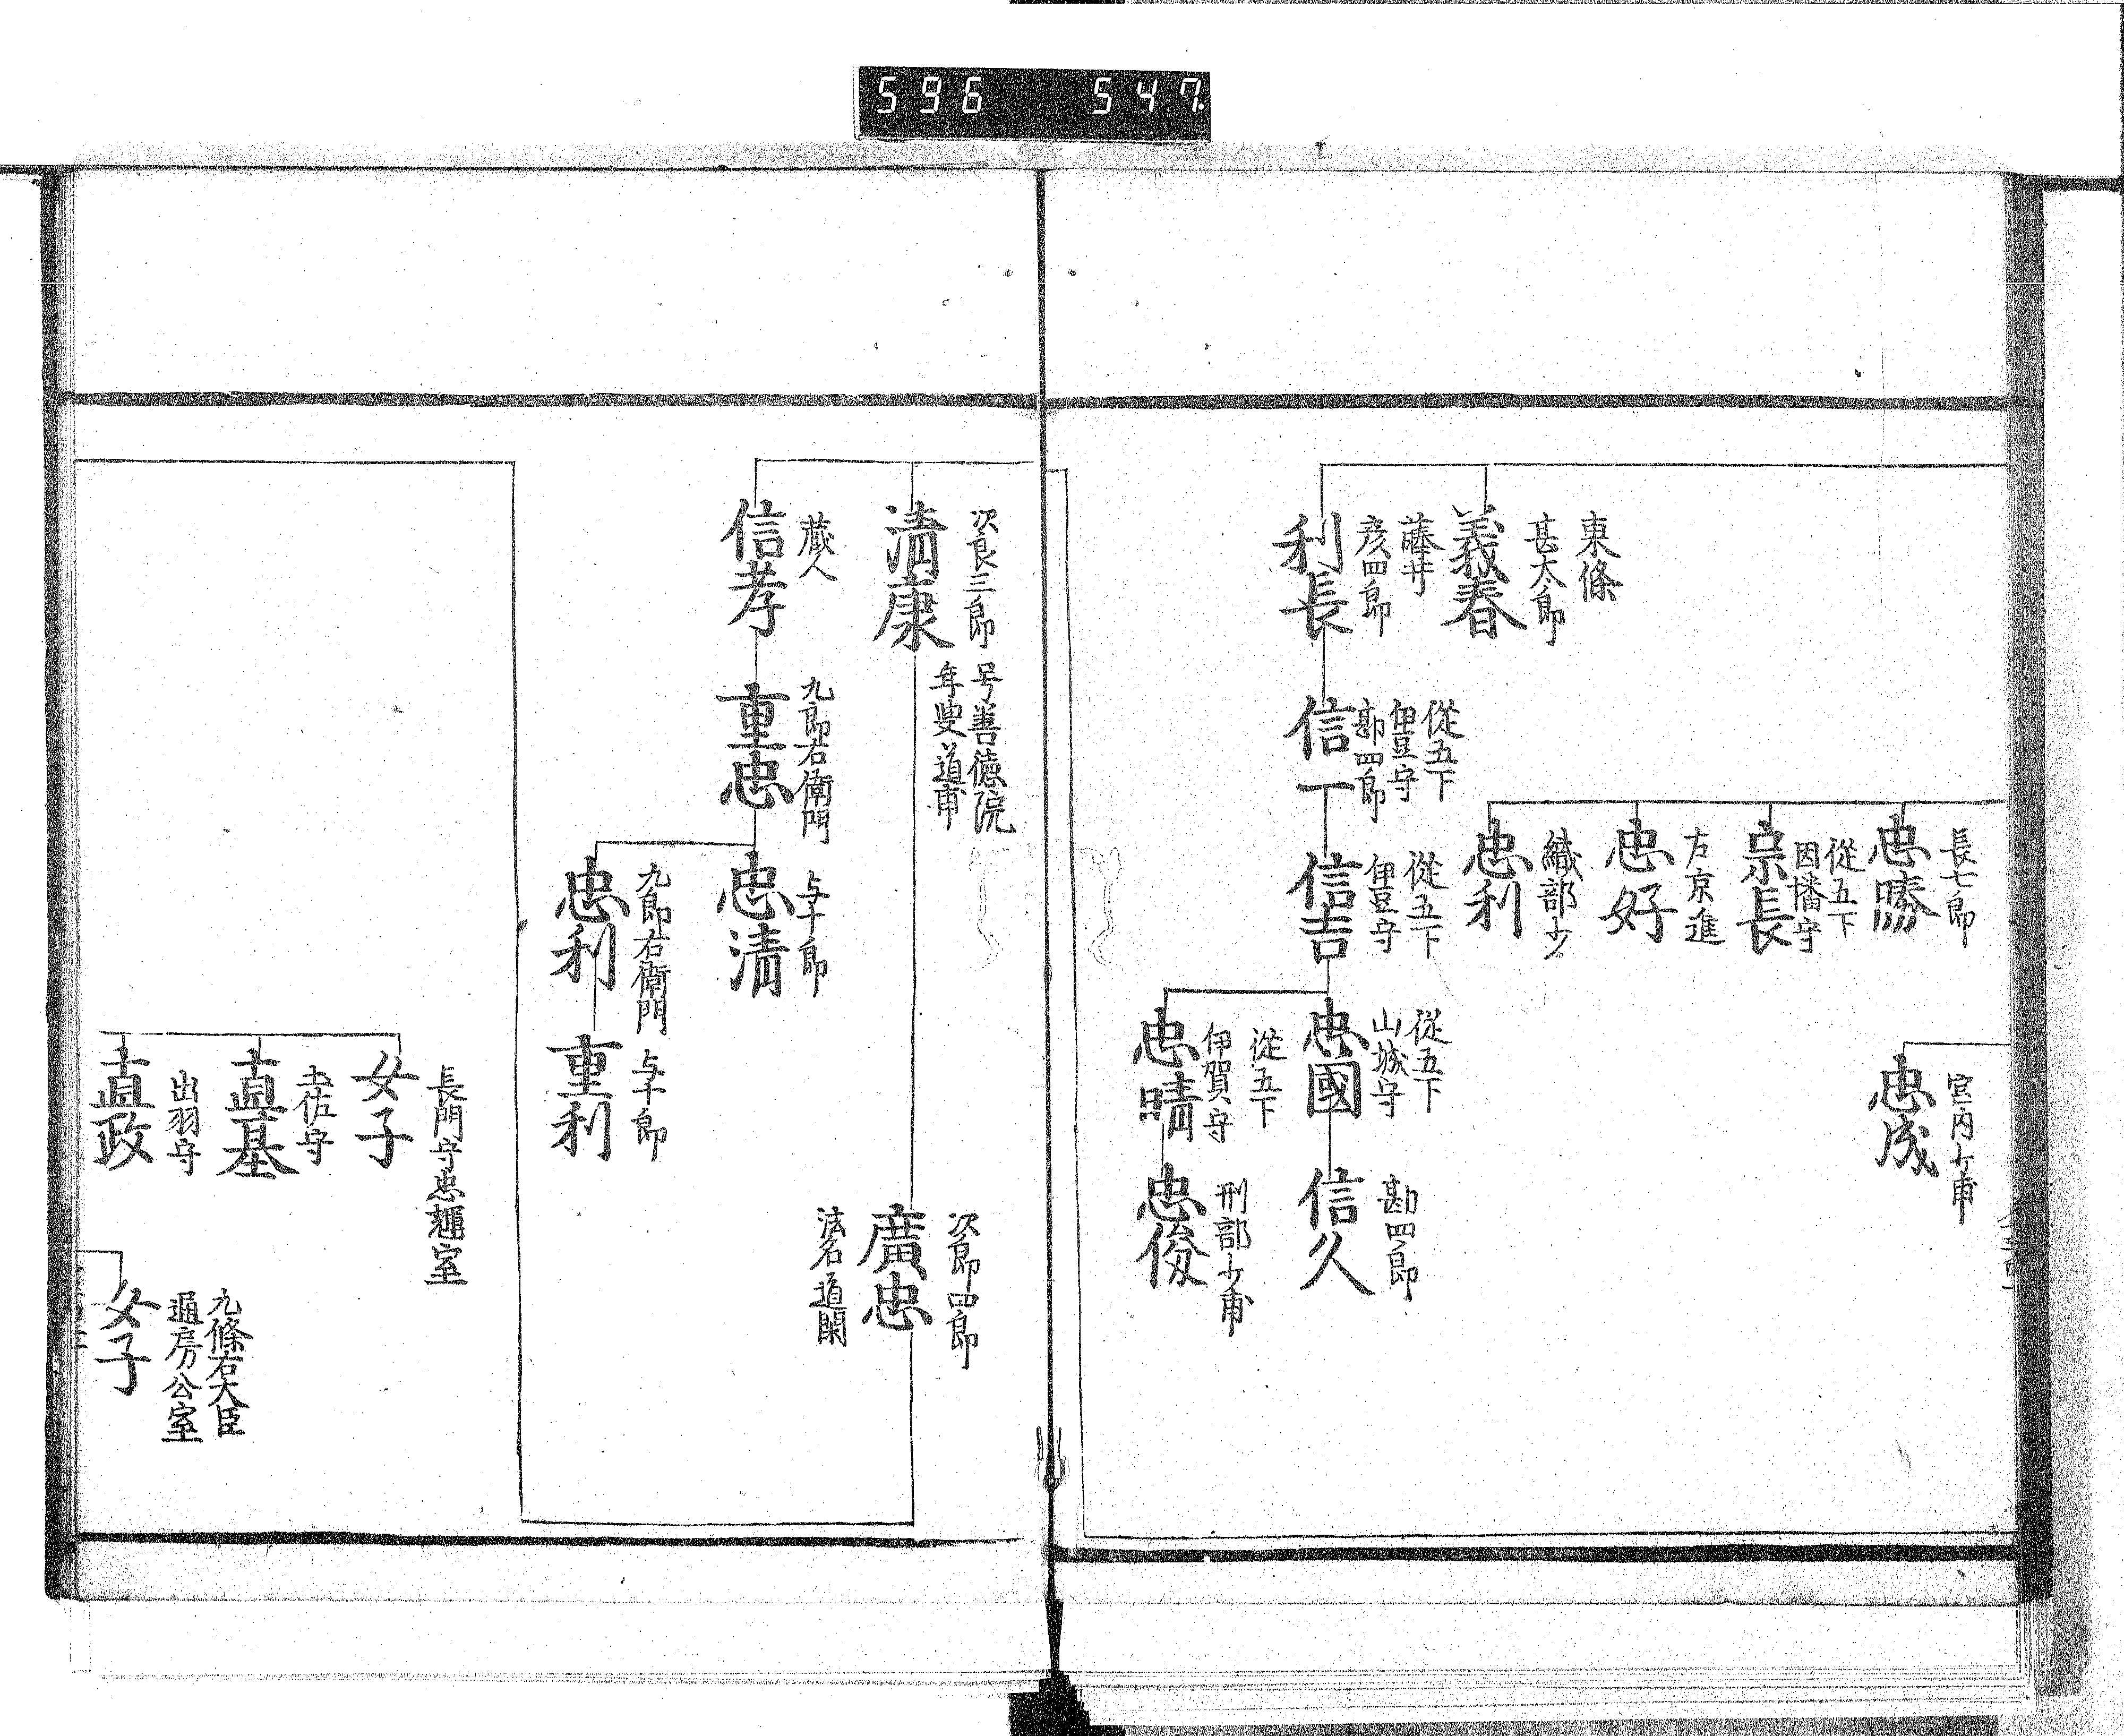 596 547.
長七郎
忠勝
從五下
因幡守
宗長
左京進
忠好
織部少
忠利
宮内少甫
忠成
東條
甚太郎
義春
藤井
彦四郎
利長
從五下
伊豆守
勘四郎
信一
從五下
伊豆守
信吉
從五下
山城守
忠國
勘四郎
信久
從五下
伊賀守
忠晴
刑部少甫
忠俊
次良三郎
清康
号善徳院
年叟道甫
次郎四郎
廣忠
法名道閑
蔵人
信孝
九郎右衛門
重忠
与十郎
忠清
九郎右衛門
忠利
与十郎
重利
長門守忠輝室
女子
土佐守
直基
出羽守
直政
九條右大臣
道房公室
女子